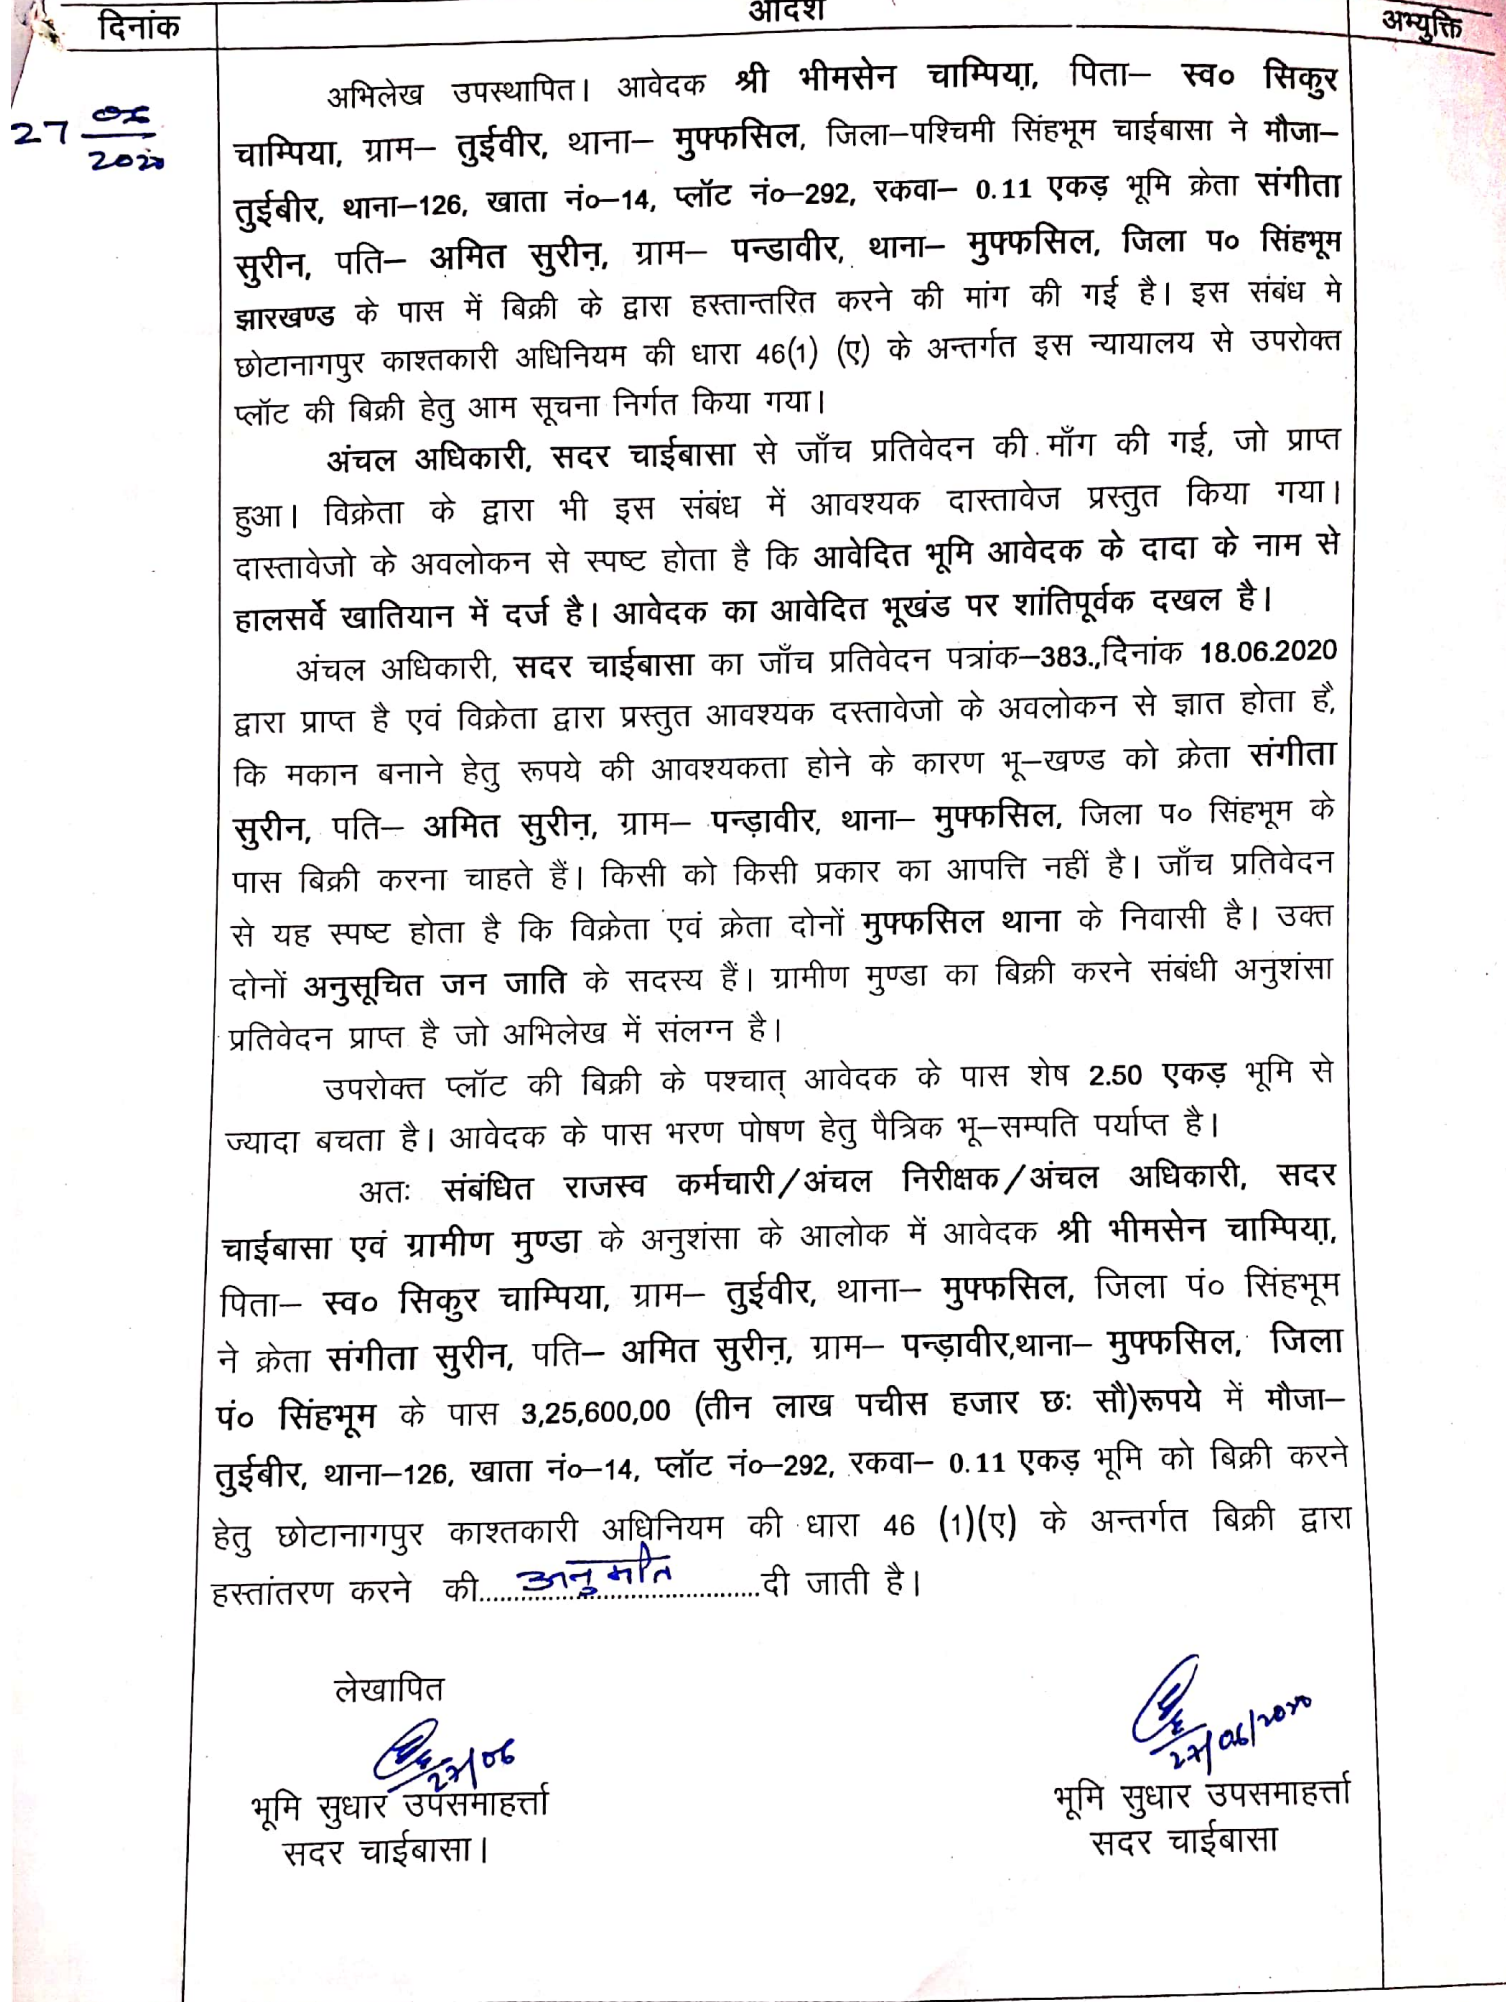 दिनांक
आदेश
अभ्युक्ति
27 06
2020
अभिलेख उपस्थापित। आवेदक श्री भीमसेन चाम्पिया, पिता– स्व० सिकुर
चाम्पिया, ग्राम– तुईवीर, थाना– मुफ्फसिल, जिला–पश्चिमी सिंहभूम चाईबासा ने मौजा–
तुईबीर, थाना–126, खाता नं०–14, प्लॉट नं०–292, रकवा– 0.11 एकड़ भूमि क्रेता संगीता
सुरीन, पति– अमित सुरीन, ग्राम– पन्डावीर, थाना– मुफ्फसिल, जिला प० सिंहभूम
झारखण्ड के पास में बिक्री के द्वारा हस्तान्तरित करने की मांग की गई है। इस संबंध मे
छोटानागपुर काश्तकारी अधिनियम की धारा 46(1) (ए) के अन्तर्गत इस न्यायालय से उपरोक्त
प्लॉट की बिक्री हेतु आम सूचना निर्गत किया गया।
अंचल अधिकारी, सदर चाईबासा से जाँच प्रतिवेदन की माँग की गई, जो प्राप्त
हुआ। विक्रेता के द्वारा भी इस संबंध में आवश्यक दास्तावेज प्रस्तुत किया गया।
दास्तावेजो के अवलोकन से स्पष्ट होता है कि आवेदित भूमि आवेदक के दादा के नाम से
हालसर्वे खातियान में दर्ज है। आवेदक का आवेदित भूखंड पर शांतिपूर्वक दखल है।
अंचल अधिकारी, सदर चाईबासा का जाँच प्रतिवेदन पत्रांक–383.,दिनांक 18.06.2020
द्वारा प्राप्त है एवं विक्रेता द्वारा प्रस्तुत आवश्यक दस्तावेजो के अवलोकन से ज्ञात होता है,
कि मकान बनाने हेतु रूपये की आवश्यकता होने के कारण भू–खण्ड को क्रेता संगीता
सुरीन, पति– अमित सुरीन, ग्राम– पन्ड़ावीर, थाना– मुफ्फसिल, जिला प० सिंहभूम के
पास बिक्री करना चाहते हैं। किसी को किसी प्रकार का आपत्ति नहीं है। जाँच प्रतिवेदन
से यह स्पष्ट होता है कि विक्रेता एवं क्रेता दोनों मुफ्फसिल थाना के निवासी है। उक्त
दोनों अनुसूचित जन जाति के सदस्य हैं। ग्रामीण मुण्डा का बिक्री करने संबंधी अनुशंसा
प्रतिवेदन प्राप्त है जो अभिलेख में संलग्न है।
उपरोक्त प्लॉट की बिक्री के पश्चात् आवेदक के पास शेष 2.50 एकड़ भूमि से
ज्यादा बचता है। आवेदक के पास भरण पोषण हेतु पैत्रिक भू–सम्पति पर्याप्त है।
अतः संबंधित राजस्व कर्मचारी/अंचल निरीक्षक/अंचल अधिकारी, सदर
चाईबासा एवं ग्रामीण मुण्डा के अनुशंसा के आलोक में आवेदक श्री भीमसेन चाम्पिया,
पिता– स्व० सिकुर चाम्पिया, ग्राम– तुईवीर, थाना– मुफ्फसिल, जिला पं० सिंहभूम
ने क्रेता संगीता सुरीन, पति– अमित सुरीन, ग्राम– पन्ड़ावीर,थाना– मुफ्फसिल, जिला
पं० सिंहभूम के पास 3,25,600,00 (तीन लाख पचीस हजार छः सौ)रूपये में मौजा–
तुईबीर, थाना–126, खाता नं०–14, प्लॉट नं०–292, रकवा– 0.11 एकड़ भूमि को बिक्री करने
हेतु छोटानागपुर काश्तकारी अधिनियम की धारा 46 (1)(ए) के अन्तर्गत बिक्री द्वारा
हस्तांतरण करने की.....अनुमति.....दी जाती है।
लेखापित
27/06
27/06/2020
भूमि सुधार उपसमाहर्त्ता
भूमि सुधार उपसमाहर्त्ता
सदर चाईबासा।
सदर चाईबासा